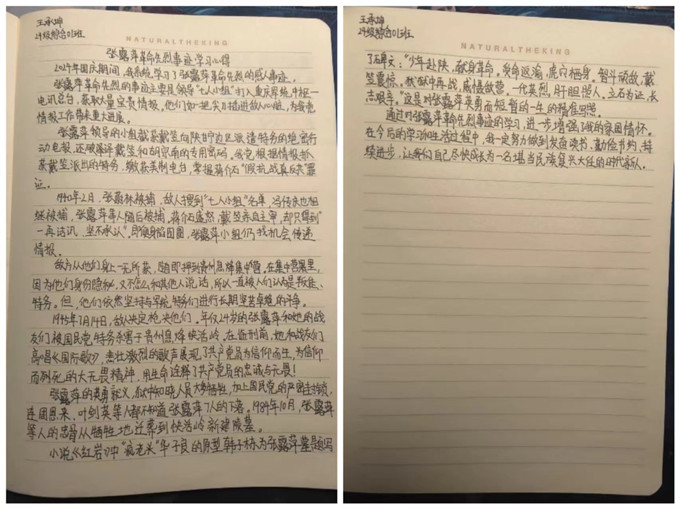 王承坤
24级综合01班
NATURALTHEKING
张露萍革命先烈事迹学习心得
2024年国庆期间,我系统学习了张露萍革命先烈的感人事迹。
张露萍革命先烈的事迹主要是领导“七人小组”打入重庆军统本部—
电讯总台,获取大量宝贵情报。他们如一把尖刀插进敌人心脏,为我党
情报工作带来重大进展。
张露萍领导的小组截获戴笠向陕甘边区派遣特务的绝密行
动电报,还破译了戴笠和胡宗南的专用密码。我党根据情报抓
获戴笠派出的特务,缴获美制电台,掌握蒋介石“假抗战真反共”罪
证。
1940年2月,张蔚林被捕,敌人搜到“七人小组”名单,冯传庆也相
继被捕,张露萍等人随后被捕。蒋介石震怒,戴笠亲自主审,却只得到“
一再诘讯,坚不承认”。即使身陷囹圄,张露萍小组仍找机会传递
情报。
敌方从他们身上一无所获,随即押到贵州息烽集中营。在集中营里,
因为他们身份隐秘,又不怎么和其他人说话,所以一直被人们认为是叛徒、
特务。但,他们依然坚持与军统特务们进行长期坚苦卓绝的斗争。
1945年7月14日,敌人决定枪决他们。年仅24岁的张露萍和她的战
友们被国民党特务杀害于贵州息烽快活岭。在临刑前,她和战友们
高唱《国际歌》,悲壮激烈的歌声展现了共产党员为信仰而生、为信仰
而列死的大无畏精神,用生命诠释了共产党员的忠诚与无畏!
张露萍的英勇就义,狱中知晓人员大多牺牲,加上国民党的严密封锁,
连周恩来、叶剑英等人都不知道张露萍7人的下落。1984年10月,张露萍
等人的忠骨从牺牲地迁葬到快活岭新建陵墓。
小说《红岩》中“疯老头”华子良的原型韩子栋为张露萍墓题写
王承坤
24级综合01班
NATURALTHEKING
了碑文:“少年赴陕,献身革命。受命返渝,虎穴栖身。智斗顽敌,戴
笠震惊。铁狱中再战,威慑敌营。一代英烈,肝胆照人。立石为证,长
志艰辛。”这是对张露萍英勇而短暂的一生的精准回答。
通过对张露萍革命先烈事迹的学习,进一步增强了我的家国情怀。
在今后的学习和生活过程中,我一定努力做到发奋读书,勤俭节约,持
续进步,让我们自己尽快成长为一名堪当民族复兴大任的时代新人。